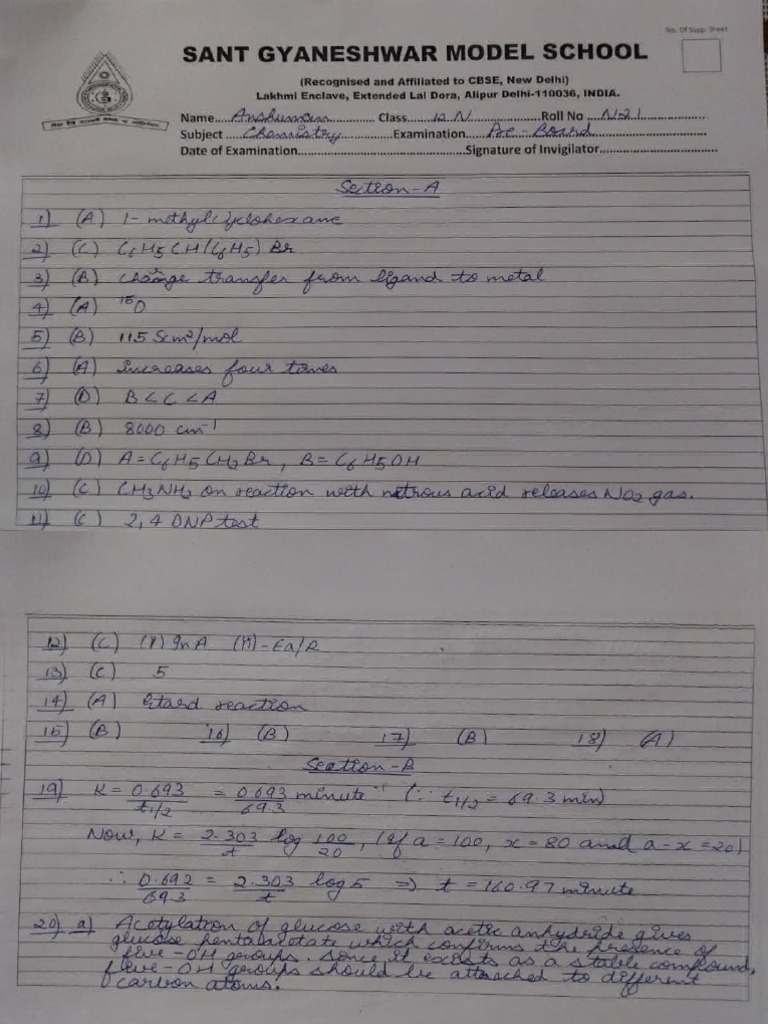 No. Of Supp. Sheet
SANT GYANESHWAR MODEL SCHOOL
(Recognised and Affiliated to CBSE, New Delhi)
Lakhmi Enclave, Extended Lal Dora, Alipur Delhi-110036, INDIA.
Name Anshuman Class 12 N Roll No N-21
Subject Chemistry Examination Pre-Board
Date of Examination Signature of Invigilator
Section-A
1) (A) 1-methylcyclohexane
2) (C) C6H5CH(C6H5)Br
3) (B) Charge transfer from ligand to metal
4) (A) 18O
5) (B) 11.5 Scm²/mol
6) (A) Increases four times
7) (D) B < C < A
8) (B) 8000 cm⁻¹
9) (D) A = C6H5CH2Br, B = C6H5OH
10) (C) CH3NH2 on reaction with nitrous acid releases NO2 gas.
11) (C) 2,4 DNP test
12) (C) (I) ln A (II) -Ea/R
13) (C) 5
14) (A) Etard reaction
15) (B) 16) (B) 17) (B) 18) (A)
Section-B
19) K = 0.693/t1/2 = 0.693/69.3 minute⁻¹ (∵ t1/2 = 69.3 min)
Now, K = 2.303/t log 100/20, (If a = 100, x = 80 and a-x = 20)
∴ 0.692/69.3 = 2.303/t log 5 ⇒ t = 160.97 minute
20) a) Acetylation of glucose with acetic anhydride gives
glucose pentaacetate which confirms the presence of
five -OH groups. Since it exists as a stable compound,
five -OH groups should be attached to different
carbon atoms.